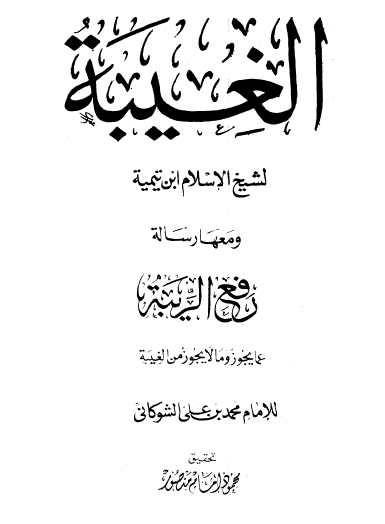 الغِيبَة
لشيخ الإسلام ابن تيمية
ومعها رسالة
رفع الرِّيبَة
عما يجوز وما لا يجوز من الغيبة
للإمام محمد بن علي الشوكاني
تحقيق
محمود إمام منصور